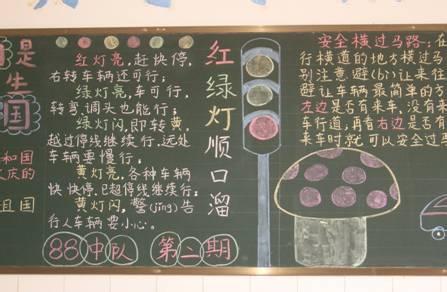 是
生
国
和国
庆的
且国
红灯亮，赶快停，
右转车辆还可行；
绿灯亮，车可行，
转弯调头也能行；
绿灯闪，即转黄，
越过停线继续行，远处
车辆要慢行，
黄灯亮，各种车辆
快快停，已超停线继续行；
黄灯闪，警(jǐng)告
行人车辆要小心。
88中队 第二期
红绿灯顺口溜
安全横过马路：在
行横道的地方横过马
别注意避(bì)让来往
避让车辆最简单的方
左边是否有来车，没有来
车行道；再看右边是否有
来车时就可以安全过